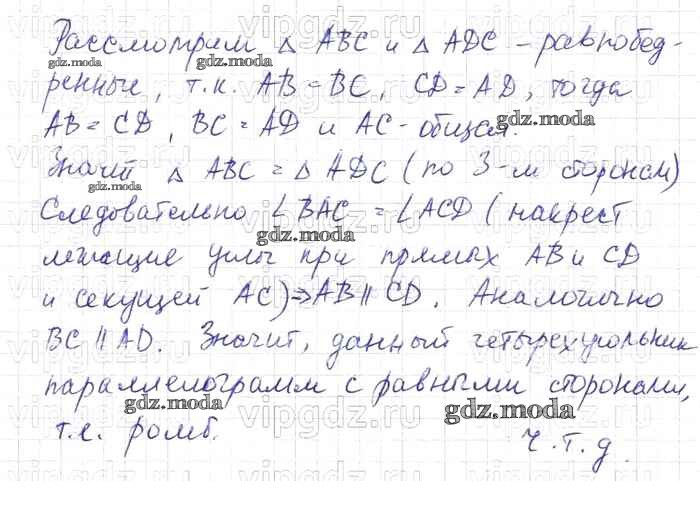 Рассмотрим △ ABC и △ ADC - равнобед-
ренные, т.к. AB = BC, CD = AD, тогда
AB = CD, BC = AD и AC - общая.
Значит △ ABC = △ ADC (по 3-м сторонам)
Следовательно ∠BAC = ∠ACD (накрест
лежащие углы при прямых AB и CD
и секущей AC) ⇒ AB ∥ CD. Аналогично
BC ∥ AD. Значит, данный четырехугольник
параллелограмм с равными сторонами,
т.е. ромб.
Ч.т.д.